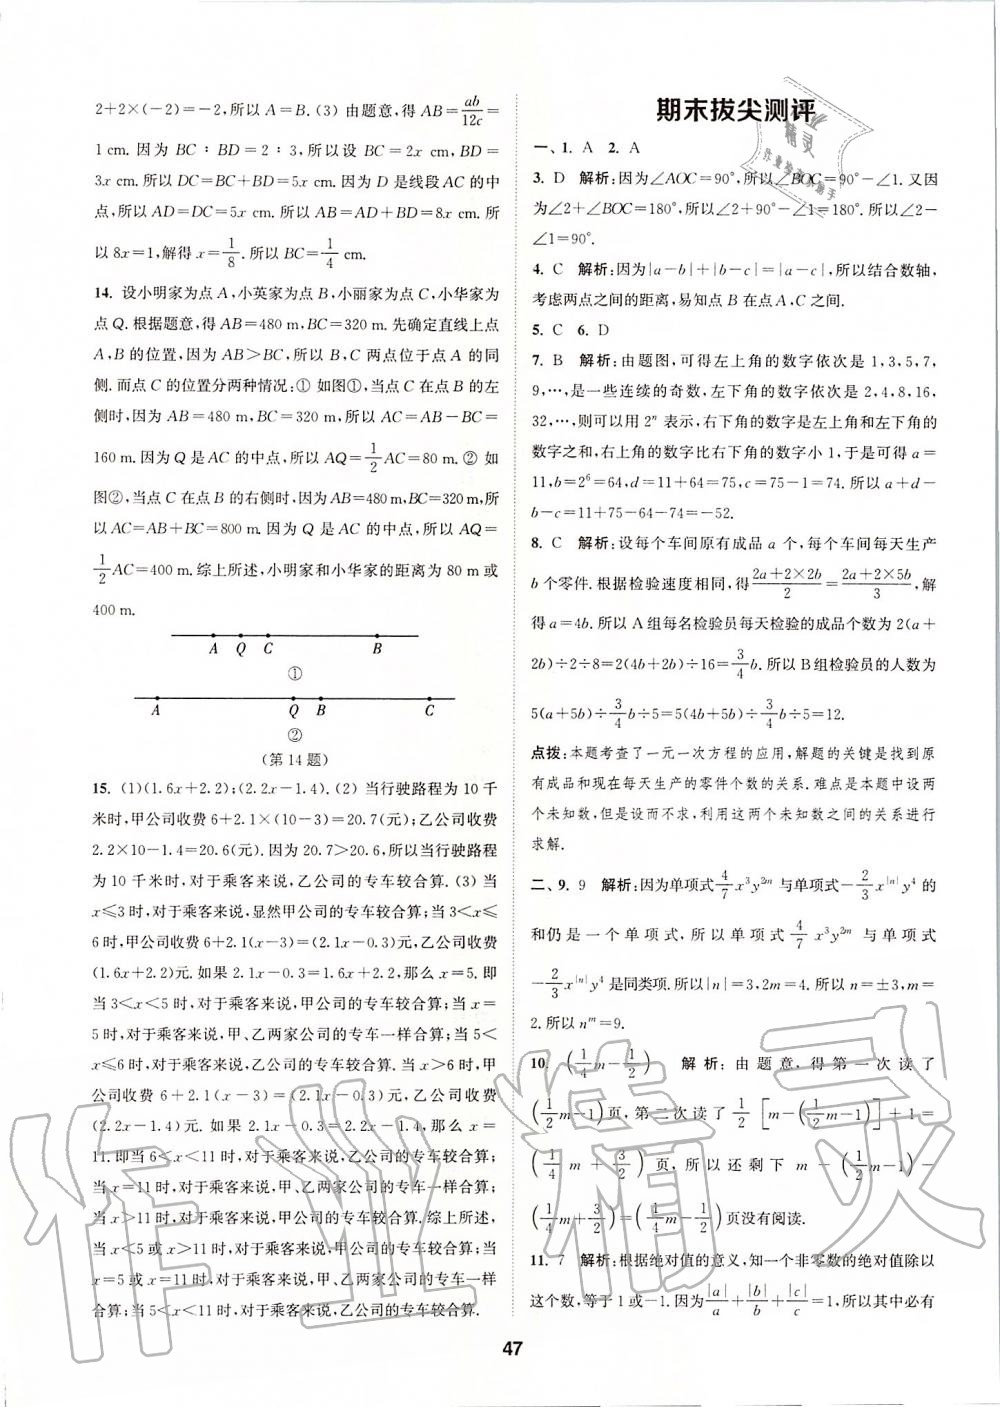 2+2×(-2)=-2,所以A=B. (3) 由题意,得AB=ab/12c=
1 cm. 因为 BC∶BD=2∶3,所以设 BC=2x cm,BD=
3x cm. 所以DC=BC+BD=5x cm. 因为D是线段AC的中
点,所以AD=DC=5x cm. 所以AB=AD+BD=8x cm. 所
以8x=1,解得x=1/8. 所以BC=1/4 cm.
14. 设小明家为点A,小英家为点B,小丽家为点C,小华家为
点Q. 根据题意,得AB=480 m,BC=320 m. 先确定直线上点
A、B的位置,因为AB>BC,所以B、C两点位于点A的同
侧. 而点C的位置分两种情况:① 如图①,当点C在点B的左
侧时,因为AB=480 m,BC=320 m,所以AC=AB-BC=
160 m. 因为Q是AC的中点,所以AQ=1/2AC=80 m. ② 如
图②,当点C在点B的右侧时,因为AB=480 m,BC=320 m,所
以AC=AB+BC=800 m. 因为Q是AC的中点,所以AQ=
1/2AC=400 m. 综上所述,小明家和小华家的距离为80 m或
400 m.
A Q C B
①
A Q B C
②
(第14题)
15. (1)(1.6x+2.2);(2.2x-1.4). (2) 当行驶路程为10千
米时,甲公司收费6+2.1×(10-3)=20.7(元);乙公司收费
2.2×10-1.4=20.6(元). 因为20.7>20.6,所以当行驶路程
为10千米时,对于乘客来说,乙公司的专车较合算. (3) 当
x≤3时,对于乘客来说,显然甲公司的专车较合算;当3<x≤
6时,甲公司收费6+2.1(x-3)=(2.1x-0.3)元,乙公司收费
(1.6x+2.2)元. 如果2.1x-0.3=1.6x+2.2,那么x=5. 即
当3<x<5时,对于乘客来说,甲公司的专车较合算;当x=5
时,对于乘客来说,甲、乙两家公司的专车一样合算;当5<
x≤6时,对于乘客来说,乙公司的专车较合算. 当x>6时,甲
公司收费6+2.1(x-3)=(2.1x-0.3)元,乙公司收费
(2.2x-1.4)元. 如果2.1x-0.3=2.2x-1.4,那么x=
11. 即当6<x<11时,对于乘客来说,乙公司的专车较合算;
当x=11时,对于乘客来说,甲、乙两家公司的专车一样合算;
当x>11时,对于乘客来说,甲公司的专车较合算. 综上所述,
当x<5或x>11时,对于乘客来说,甲公司的专车较合算;当
x=5或x=11时,对于乘客来说,甲、乙两家公司的专车一样
合算;当5<x<11时,对于乘客来说,乙公司的专车较合算.
期末拔尖测评
一、1. A 2. A
3. D 解析:因为∠AOC=90°,所以∠BOC=90°-∠1. 又因
为∠2+∠BOC=180°,所以∠2+90°-∠1=180°. 所以∠2-
∠1=90°.
4. C 解析:因为|a-b|+|b-c|=|a-c|,所以结合数轴,
考虑两点之间的距离,易知点B在点A、C之间.
5. C 6. D
7. B 解析:由题图,可得左上角的数字依次是1,3,5,7,
9,…,是一些连续的奇数,左下角的数字依次是2,4,8,16,
32,…,则可以用2ⁿ表示,右下角的数字是左上角和左下角的
数字之和,右上角的数字比右下角的数字小1,于是可得a=
11,b=2⁶=64,d=11+64=75,c=75-1=74. 所以a+d-
b-c=11+75-64-74=-52.
8. C 解析:设每个车间原有成品a个,每个车间每天生产
b个零件. 根据检验速度相同,得(2a+2×2b)/2=(2a+2×5b)/3,解
得a=4b. 所以A组每名检验员每天检验的成品个数为2(a+
2b)÷2÷8=2(4b+2b)÷16=3/4b. 所以B组检验员的人数为
5(a+5b)÷3/4b÷5=5(4b+5b)÷3/4b÷5=12.
点拨:本题考查了一元一次方程的应用,解题的关键是找到原
有成品和现在每天生产的零件个数的关系. 难点是本题中设两
个未知数,但是不需要求出,利用这两个未知数之间的关系进行
求解.
二、9. 9 解析:因为单项式4/7x³y²ᵐ与单项式-2/3x^|n|y⁴的
和仍是一个单项式,所以单项式4/7x³y²ᵐ与单项式
-2/3x^|n|y⁴是同类项. 所以|n|=3,2m=4. 所以n=±3,m=
2. 所以nᵐ=9.
10. (1/4m-1/2) 解析:由题意,得第一次读了
(1/2m-1)页,第二次读了1/2[m-(1/2m-1)]+1=
(1/4m+3/2)页,所以还剩下m-(1/2m-1)-
(1/4m+3/2)=(1/4m-1/2)页没有阅读.
11. 7 解析:根据绝对值的意义,知一个非零数的绝对值除以
这个数,等于1或-1. 因为|a|/a+|b|/b+|c|/c=1,所以其中必有
47
作业精灵